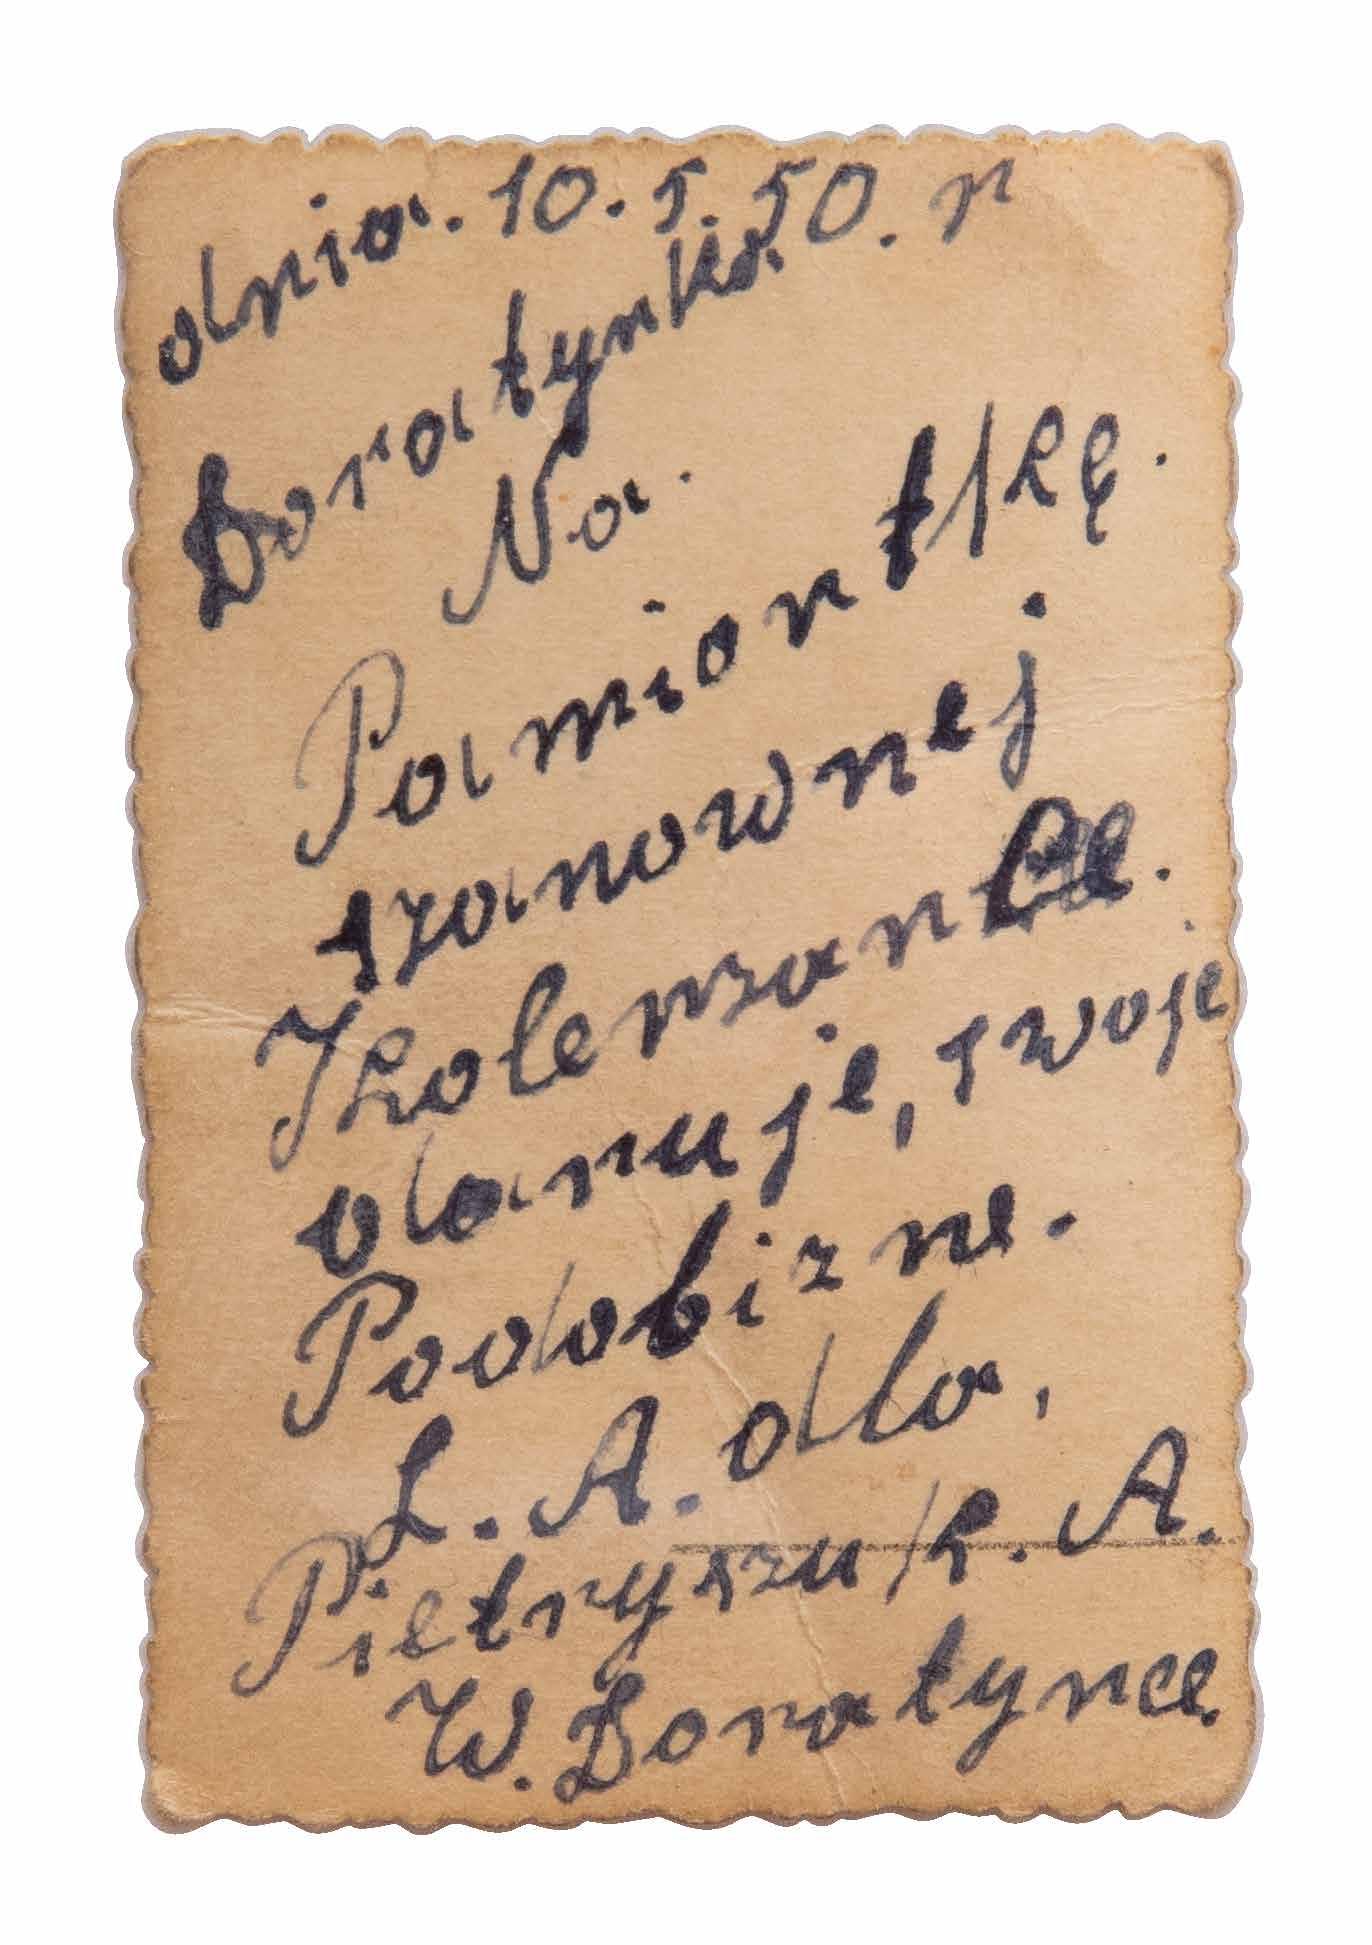 dnia. 10. 5. 50. r
Boratynka.
Na.
Pamiontkę.
szanownej
Kolenzance.
daruje, swoje
Podobizne.
L. A. dla.
Pietryszu/k. A.
W. Boratynce.